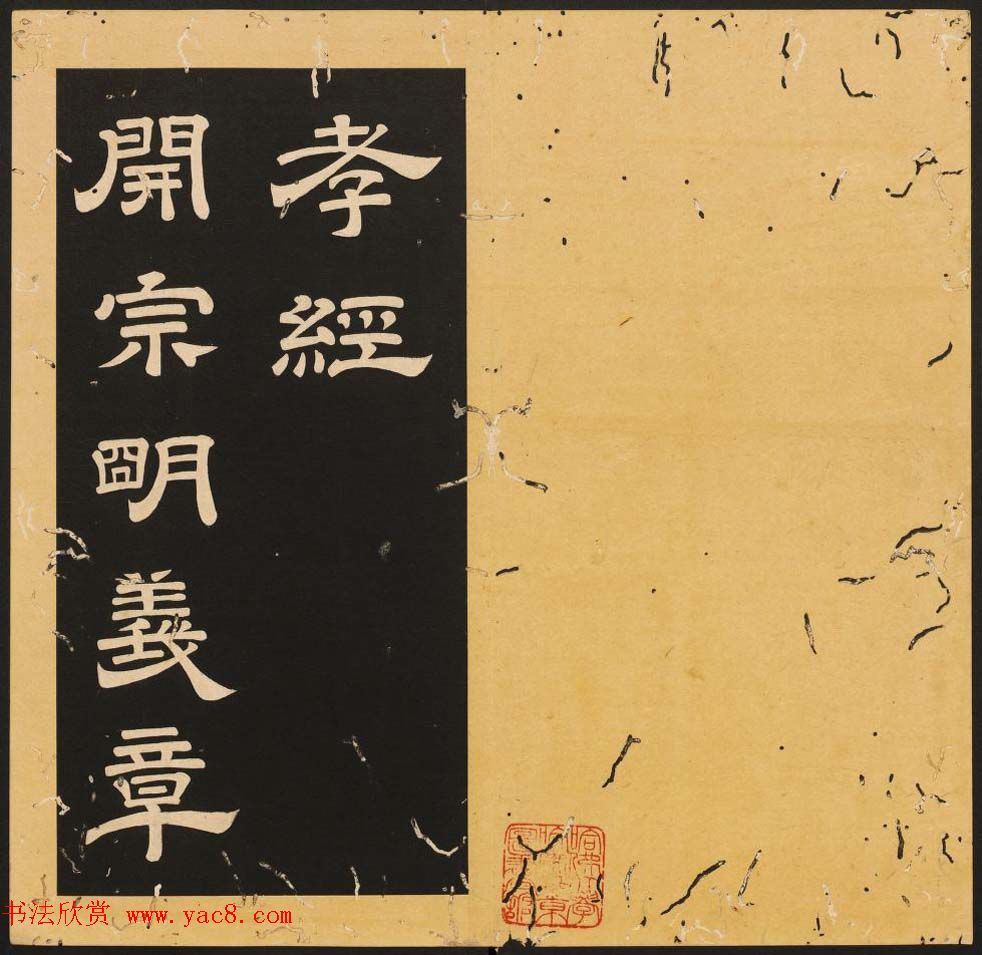 孝經
開宗明義章
书法欣赏 www.yac8.com